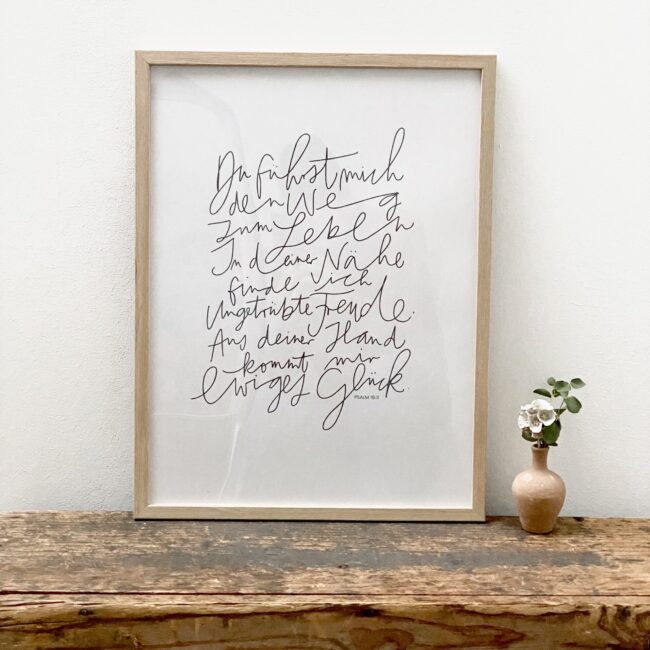 Du führst mich
den Weg
zum Leben
In deiner Nähe
finde ich
Ungetrübte Freude.
Aus deiner Hand
kommt mir
ewiges Glück.
PSALM 16:11